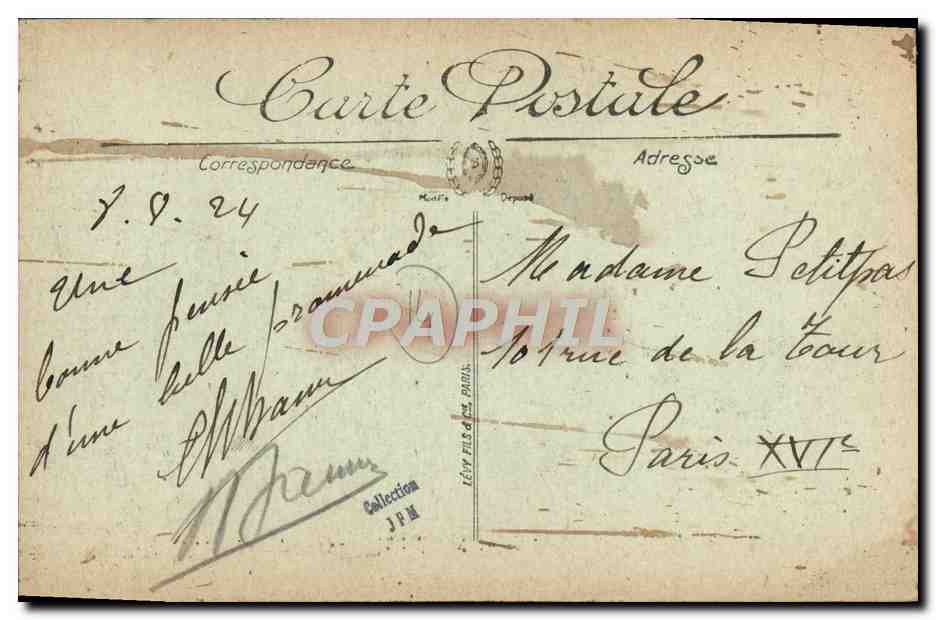 Carte Postale
Correspondance
Adresse
Modèle Déposé
8.8.24
Une
bonne pensée
d'une belle promenade
Madame Petitpas
101 rue de la Tour
Paris XVIe
CPAPHIL
LÉVY FILS & Cie, PARIS.
Collection
JPM